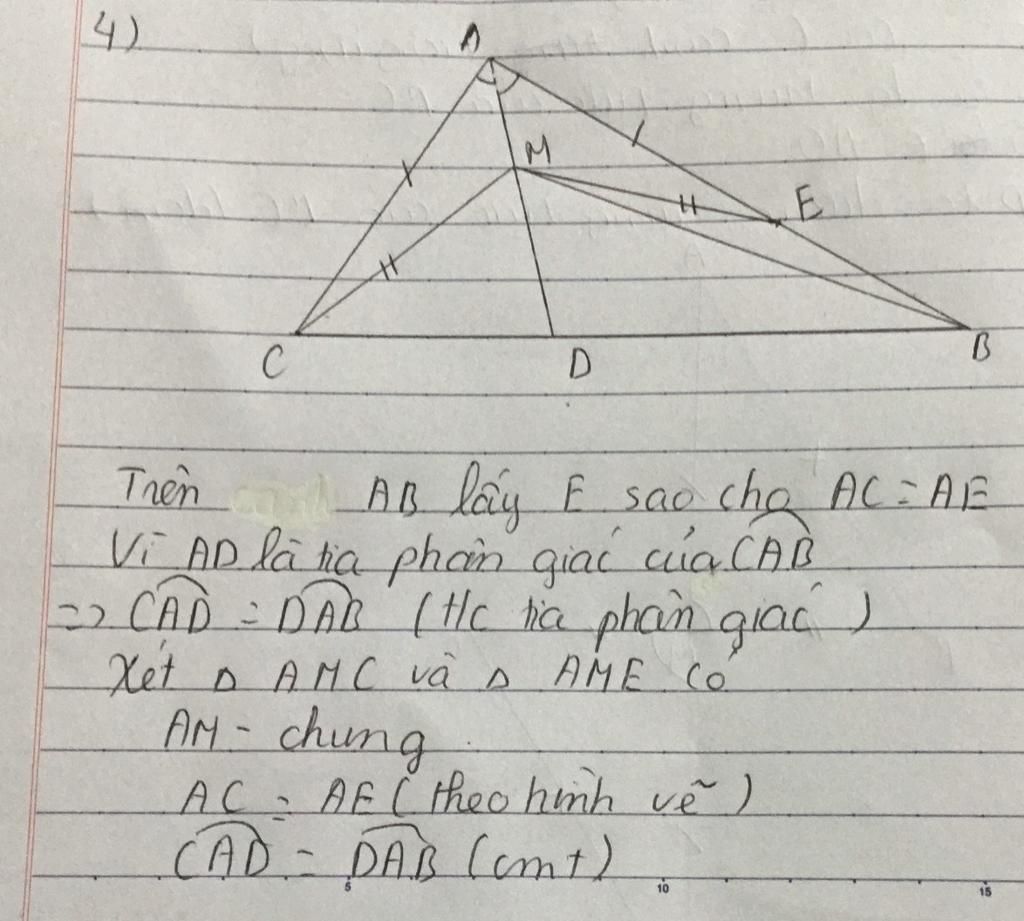 4)
A
M
E
C
D
B
Trên AB lấy E sao cho AC = AE
Vì AD là tia phân giác của CAB
=> CAD = DAB (t/c tia phân giác)
Xét Δ AMC và Δ AME có
AM - chung
AC = AE (theo hình vẽ)
CAD = DAB (cmt)
5 10 15